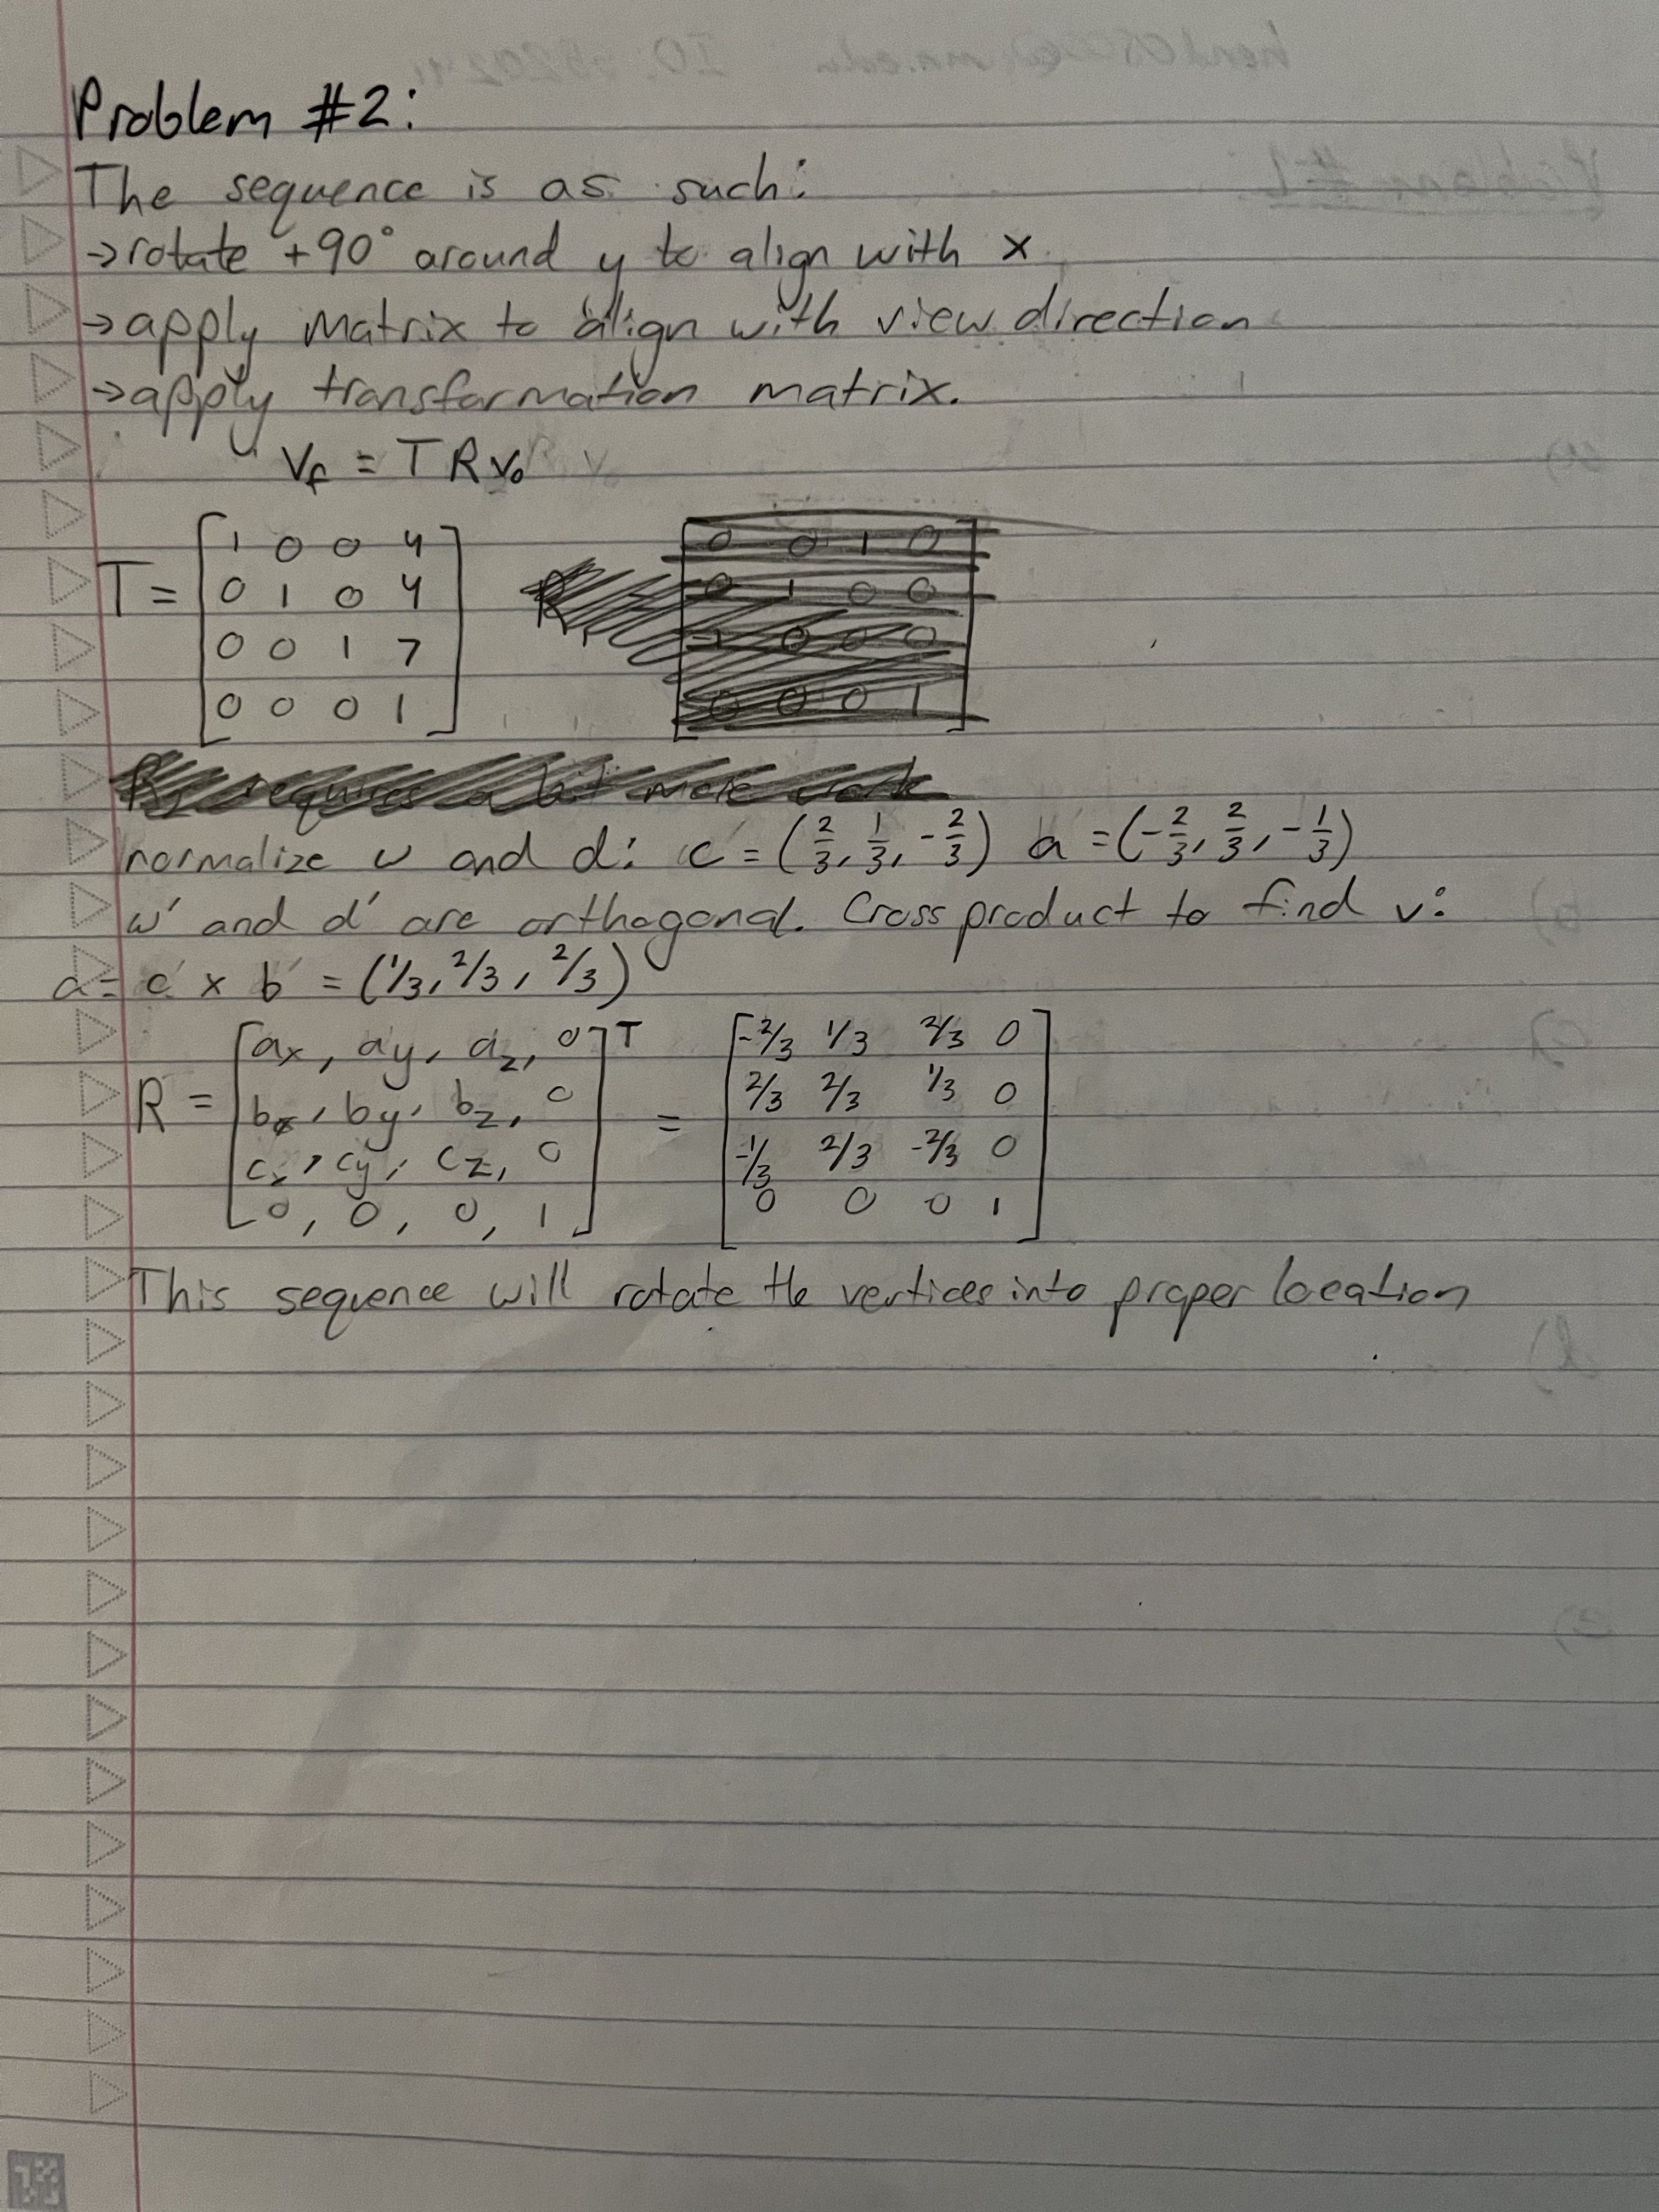 Problem #2:
The sequence is as such:
→rotate +90° around y to align with x
→apply matrix to align with view direction
→apply transformation matrix.
V_f = T R v_0
T = [1 0 0 4
0 1 0 4
0 0 1 7
0 0 0 1]
0 0 1 0
0 1 0 0
-1 0 0 0
0 0 0 1
R_2 requires a bit more work
normalize w and d: c = (2/3, 1/3, -2/3) a = (-2/3, 2/3, -1/3)
w' and d' are orthogonal. Cross product to find v:
a = c × b = (1/3, 2/3, 2/3)
R = [a_x, a_y, a_z, 0
b_x, b_y, b_z, 0
c_x, c_y, c_z, 0
0, 0, 0, 1]^T
= [-2/3 1/3 2/3 0
2/3 2/3 1/3 0
-1/3 2/3 -2/3 0
0 0 0 1]
This sequence will rotate the vertices into proper location